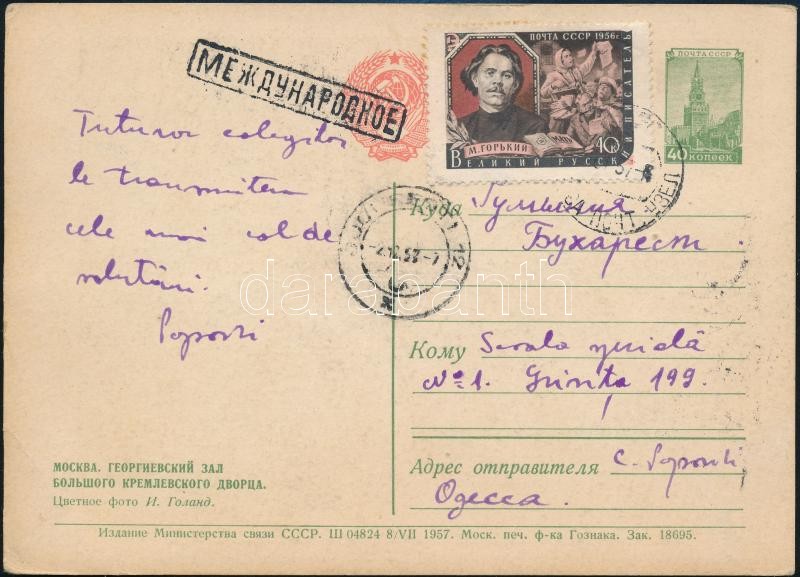 МЕЖДУНАРОДНОЕ
ПОЧТА СССР 1956г.
М. ГОРЬКИЙ
40к
ВЕЛИКИЙ РУССКИЙ ПИСАТЕЛЬ
ПОЧТА СССР
40 КОПЕЕК
Tuturor colegilor
le transmitem
cele mai calde
salutări.
Popovici
Куда Румыния
Бухарест
Кому Scoala medie
№ 1. Grivița 199.
Адрес отправителя C. Popovici
Одесса.
МОСКВА. ГЕОРГИЕВСКИЙ ЗАЛ
БОЛЬШОГО КРЕМЛЕВСКОГО ДВОРЦА.
Цветное фото И. Голанд.
Издание Министерства связи СССР. Ш 04824 8/VII 1957. Моск. печ. ф-ка Гознака. Зак. 18695.
darabanth